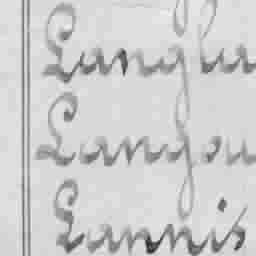 Langla
Langou
Lannis